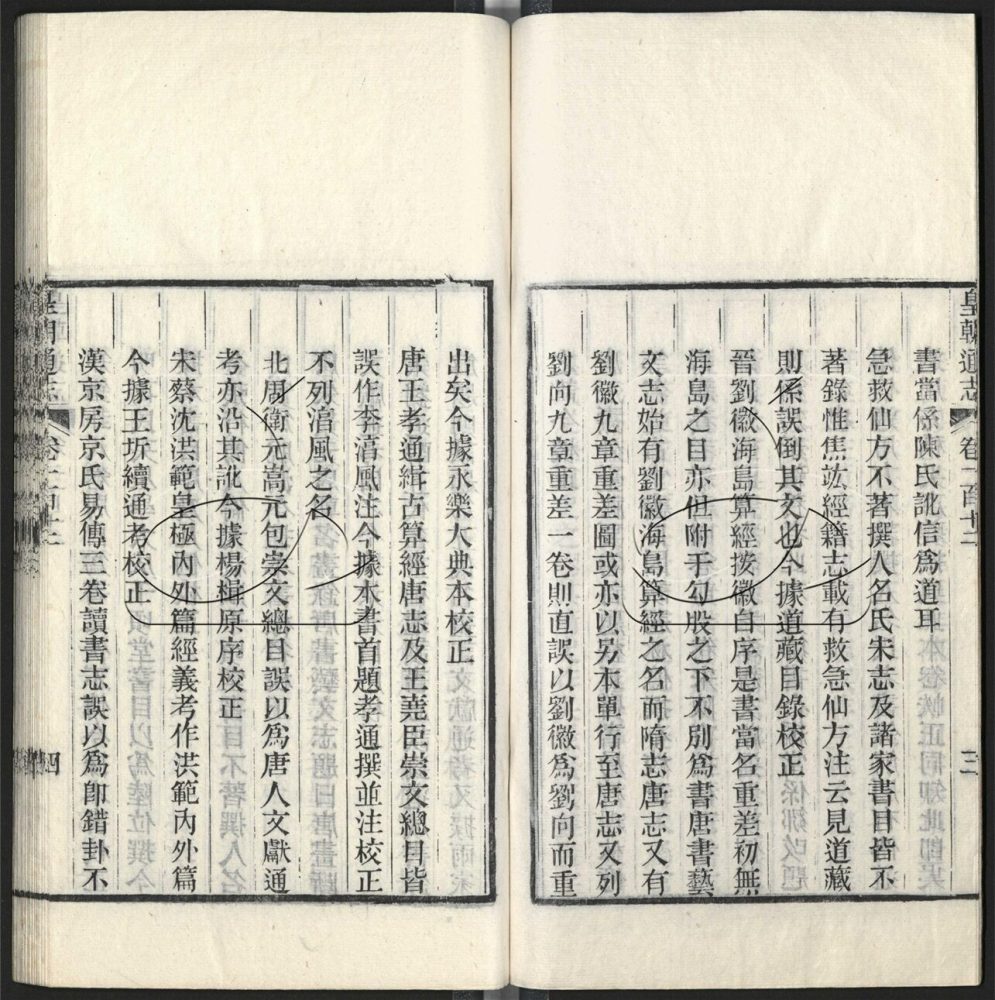 皇朝通志 卷一百十二 三
書當係陳氏訛信爲道耳
急救仙方不著撰人名氏宋志及諸家書目皆不
著錄惟焦竑經籍志載有救急仙方注云見道藏
則係誤倒其文也今據道藏目錄校正
晉劉徽海島算經按徽自序是書當名重差初無
海島之目亦但附于勾股之下不別爲書唐書藝
文志始有劉徽海島算經之名而隋志唐志又有
劉徽九章重差圖或亦以另本單行至唐志又列
劉向九章重差一卷則直誤以劉徽爲劉向而重
出矣今據永樂大典本校正
唐王孝通緝古算經唐志及王堯臣崇文總目皆
誤作李淳風注今據本書首題孝通撰並注校正
不列淳風之名
北周衛元嵩元包崇文總目誤以爲唐人文獻通
考亦沿其訛今據楊楫原序校正
宋蔡沈洪範皇極內外篇經義考作洪範內外篇
今據王圻續通考校正
漢京房京氏易傳三卷讀書志誤以爲卽錯卦不
通志 四